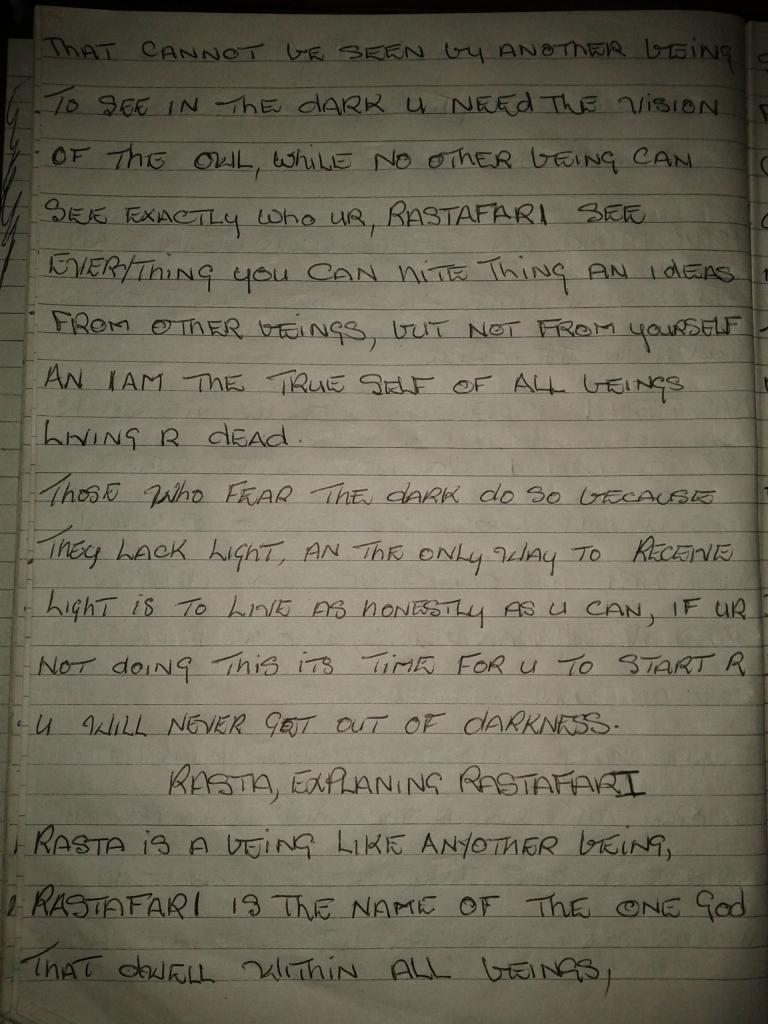 THAT CANNOT BE SEEN by ANOTHER BEING
TO SEE IN THE dARK U NEEd THE VISION
OF THE OWL, WHILE NO OTHER BEING CAN
SEE EXACTLY WHO UR, RASTAFARI SEE
EVERYTHING YOU CAN HITE THING AN IdEAS
FROM OTHER BEINGS, BUT NOT FROM YOURSELF
AN I AM THE TRUE SELF OF ALL BEINGS
LIVING R dEAD.
THOSE WHO FEAR THE dARK dO SO BECAUSE
THEY LACK LIGHT, AN THE ONLY WAY TO RECEIVE
LIGHT IS TO LIVE AS HONESTLY AS U CAN, IF UR
NOT dOING THIS ITS TIME FOR U TO START R
U WILL NEVER GET OUT OF dARKNESS.
RASTA, EXPLANING RASTAFARI
1 RASTA IS A BEING LIKE ANYOTHER BEING,
2 RASTAFARI IS THE NAME OF THE ONE God
THAT dWELL WITHIN ALL BEINGS,